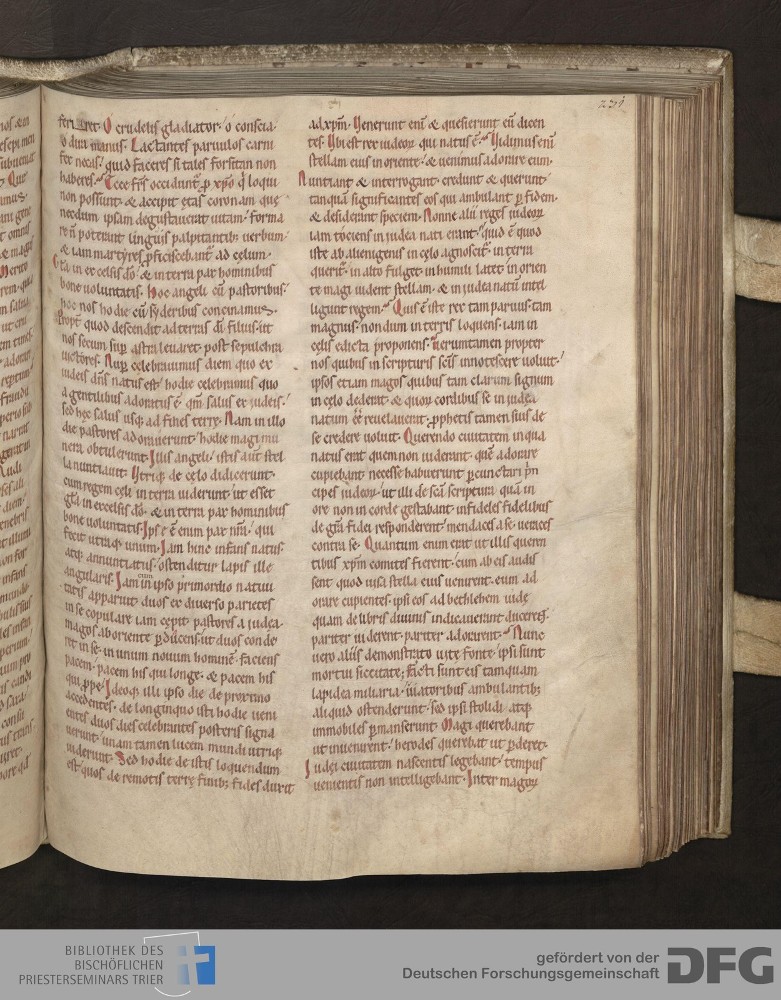 231
feriaret. O crudelis gladiator. o conscia
o dira manus. Lactantes paruulos carni
fex necas. quid faceres si tales forsitan non
haberes. Ecce frs occidunt ꝓ xpo q̇ loqui
non possunt. & accipit etas coronam quę
necdum ipsam degustauerat uitam. forma
re n̄ poterant linguis palpitantib; uerbum.
& iam martyres ꝓficiscebant ad cęlum.
Gła in excelsis dō. & in terra pax hominibus
bone uoluntatis. hoc angeli cū pastoribus.
hoc nos hodie cū syderibus concinamus.
Propt quod descendit ad terras dī filius. ut
nos secum sup astra leuaret. post sepulchra
uictores. Nup celebrauimus diem quo ex
iudeis dn̄s natus est. hodie celebramus quo
a gentibus adoratus ē. qm̄ salus ex iudeis.
sed hęc salus usq; ad fines terrę. Nam in illo
die pastores adorauerunt. hodie magi mu
nera obtulerunt. Illis angeli. istis aut̄ stel
la nuntiauit. Utriq; de cęlo didicerunt.
cum regem cęli in terra uiderunt. ut esset
gła in excelsis dō. & in terra pax hominibus
bone uoluntatis. Ipse ē enim pax nr̄a. qui
fecit utraq; unum. Iam hinc infans natus.
atq; annuntiatus. ostenditur lapis ille
angularis. Iam cum in ipso primordio natiui
tatis apparuit. duos ex diuerso parietes
in se copulare iam cępit. pastores a iudea.
magos ab oriente ꝓducens. ut duos conde
ret in se. in unum nouum hominē. faciens
pacem. pacem his qui longe. & pacem his
qui ꝓpe. Ideoq; illi ipso die de proximo
accedentes. de longinquo isti hodie ueni
entes duos dies celebrandos posteris signa
uerunt. unam tamen lucem mundi utriq;
uiderunt. Sed hodie de istis loquendum
est quos de remotis terrę finib; fides duxit
ad xpm̄. Uenerunt eni & quesierunt eū dicen
tes. Ubi est rex iudeoꝝ qui natus ē. Uidimus eni
stellam eius in oriente. & uenimus adorare eum.
Nuntiant & interrogant. credunt & querunt.
tanquā significantes eos qui ambulant ꝑ fidem.
& desiderant speciem. Nonne alii reges iudeoꝝ
iam tociens in iudea nati erant. quid ē quod
iste ab alienigenis in cęlo agnoscit̄. in terra
querit̄. in alto fulget. in humili latet. in orien
te magi uident stellam. & in iudea natū intel
ligunt regem. Quis ē iste rex tam paruus. tam
magnus. nondum in terris loquens. iam in
cęlis edicta proponens. uerumtamen propter
nos quibus in scripturis scīs innotescere uoluit.
ipsos etiam magos quibus tam clarum signum
in cęlo dederat. & quoꝝ cordibus se in iudea
natum ēē reuelauerat. ꝓphetis tamen suis de
se credere uoluit. Querendo ciuitatem in qua
natus erat quem non uiderant. quē adorare
cupiebant. necesse habuerunt ꝑcunctari prin
cipes iudeoꝝ. ut illi de scā scriptura quā in
ore non in corde gestabant. infideles fidelibus
de grā fidei responderent. mendaces a se. ueraces
contra se. Quantum enim erat ut illis queren
tibus xpm̄ comites fierent. cum ab eis audis
sent quod uisa stella eius uenirent. eum ad
orare cupientes. ipsi eos ad bethleem iudę
quam de libris diuinis indicauerant ducerent.
pariter uiderent. pariter adorarent. Nunc
uero aliis demonstrato uitę fonte. ipsi sunt
mortui siccitate. Facti sunt eis tamquam
lapidea miliaria. uiatoribus ambulantib;
aliquid ostenderunt. sed ipsi stolidi atq;
immobiles ꝑmanserunt. Magi querebant
ut inuenirent. herodes querebat ut ꝑderet.
Iudei ciuitatem nascentis legebant. tempus
uenientis non intelligebant. Inter magoꝝ
BIBLIOTHEK DES
BISCHÖFLICHEN
PRIESTERSEMINARS TRIER
gefördert von der
Deutschen Forschungsgemeinschaft
DFG